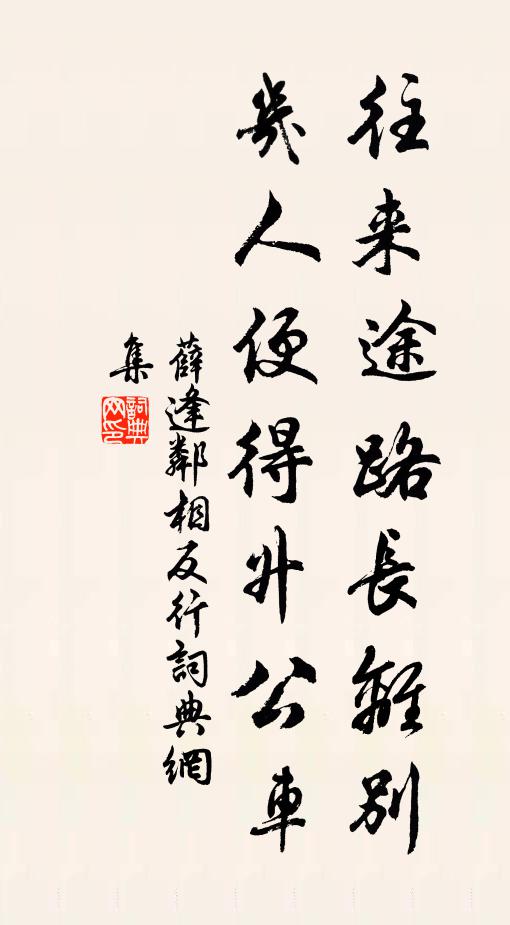 往来途路長離別
幾人便得升公車
薛逢鄰相反行詞典網
集
詞典網印